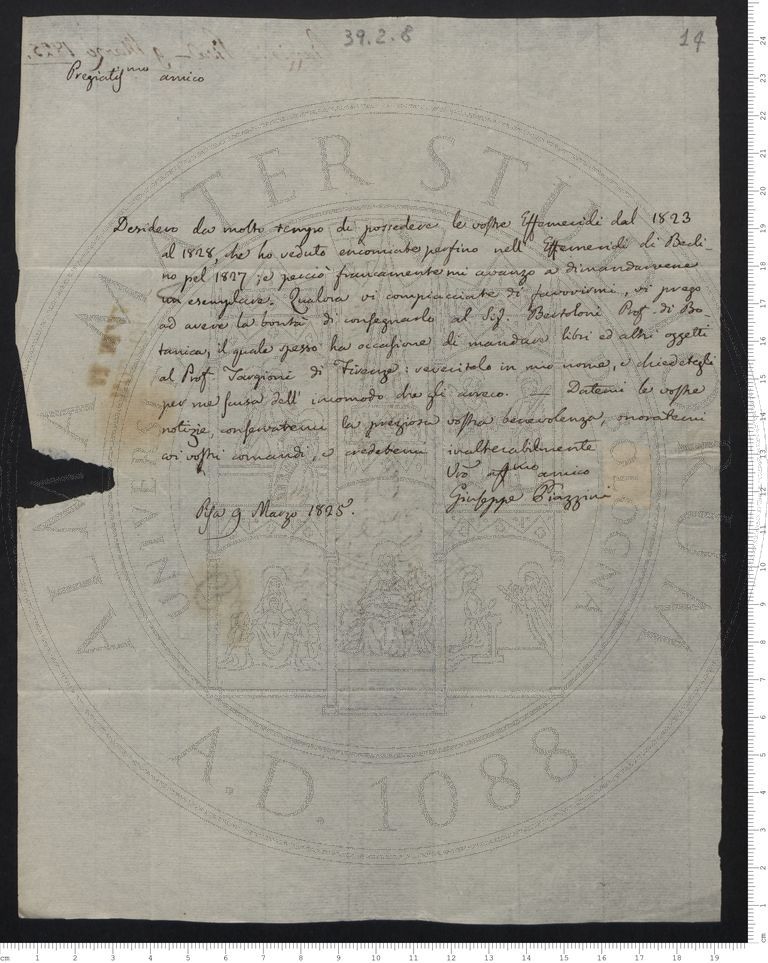 39.2.8
14
Pregiatissmo amico
Desidero da molto tempo di possedere le vostre Effemeridi dal 1823
al 1828, che ho veduto encomiate perfino nell' Effemeridi di Berli-
no pel 1827; e perciò francamente mi avanzo a dimandarvene
un esemplare. Qualora vi compiacciate di favorirmi, vi prego
ad avere la bontà di consegnarlo al Sig. Bertoloni Prof. di Bo-
tanica, il quale spesso ha occasione di mandare libri ed altri oggetti
al Prof. Targioni di Firenze: riveritelo in mio nome, e chiedetegli
per me scusa dell' incomodo che gli arreco. — Datemi le vostre
notizie, conservatemi la preziosa vostra benevolenza, onoratemi
coi vostri comandi, e credetemi inalterabilmente
Vro affmo amico
Giuseppe Piazzini
Pisa 9 Marzo 1825.
ALMA MATER STUDIORUM
A.D. 1088